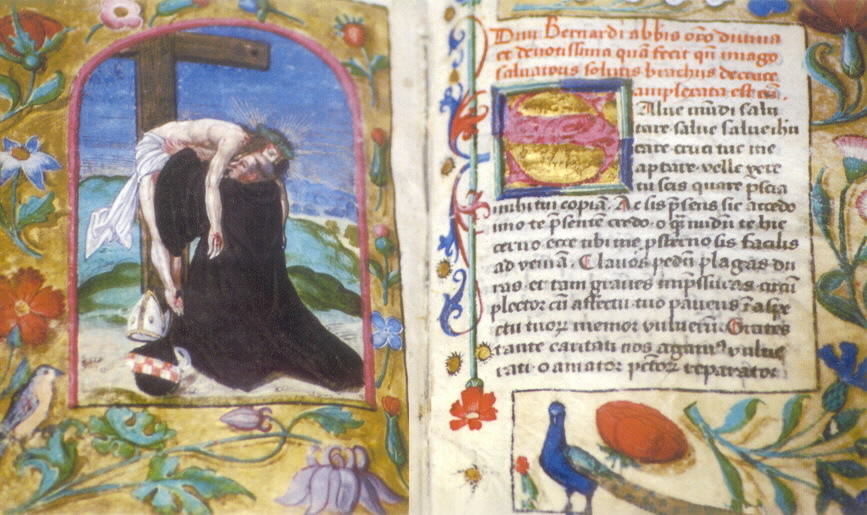 Diui Bernardi abbis orō diuina
et deuotissima quā fecit qn̄ imago
saluatoris solutis brachiis de cruce
amplexata est eū.
Salue mūdi salu
tare salue salue ihū
care cruci tue me
aptare velle vere
tu scis quare p̄scia
mihi tui copiā. Ac sis p̄sens sic accedo
īmo te p̄sentē credo. o q̄ nudū te hic
cerno ecce tibi me p̄sterno sis facilis
ad veniā. Clauos pedū plagas du
ras et tam graues imp̄ssuras circū
plector cū affectu tuo pauens ī aspe
ctu tuoꝝ memor vulnerū. Grates
tante caritati nos agamꝰ vulne
rati. o amator p̄ctoꝝ reparator